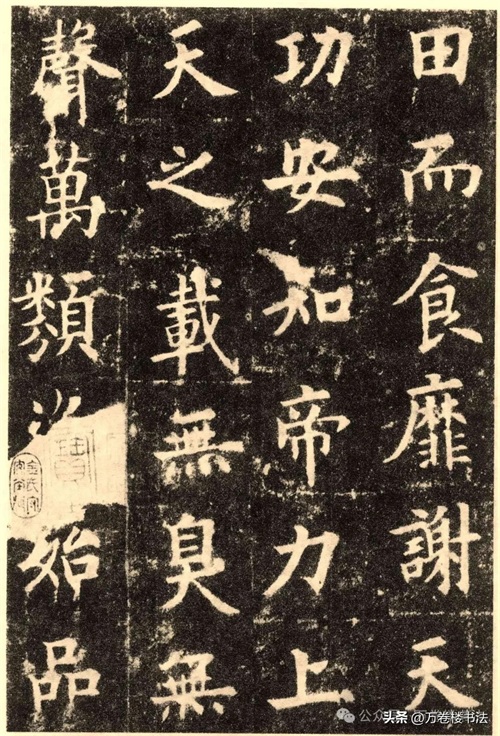 田而食靡謝天
功安知帝力上
天之載無臭無
聲萬類始品
公众号
头条 @万卷楼书法